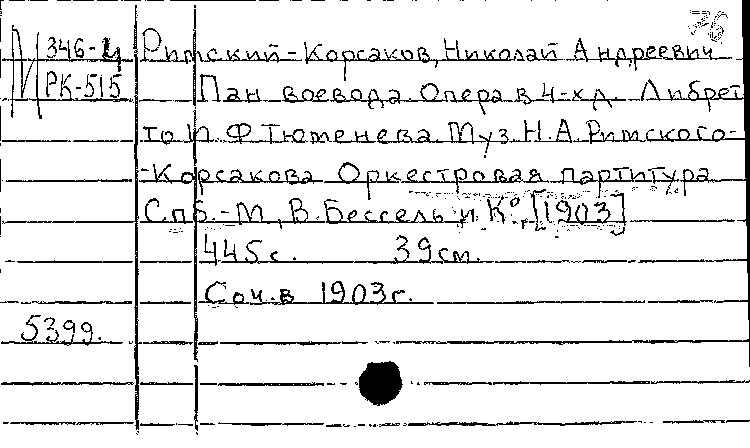 76
М 346-4
РК-515
Римский-Корсаков, Николай Андреевич
Пан воевода. Опера в 4-х д. Либрет
то И. Ф. Тюменева Муз. Н. А. Римского-
-Корсакова Оркестровая партитура
Спб.-М., В. Бессель и К°, [1903]
445 с. 39 см.
Соч. в 1903 г.
5399.